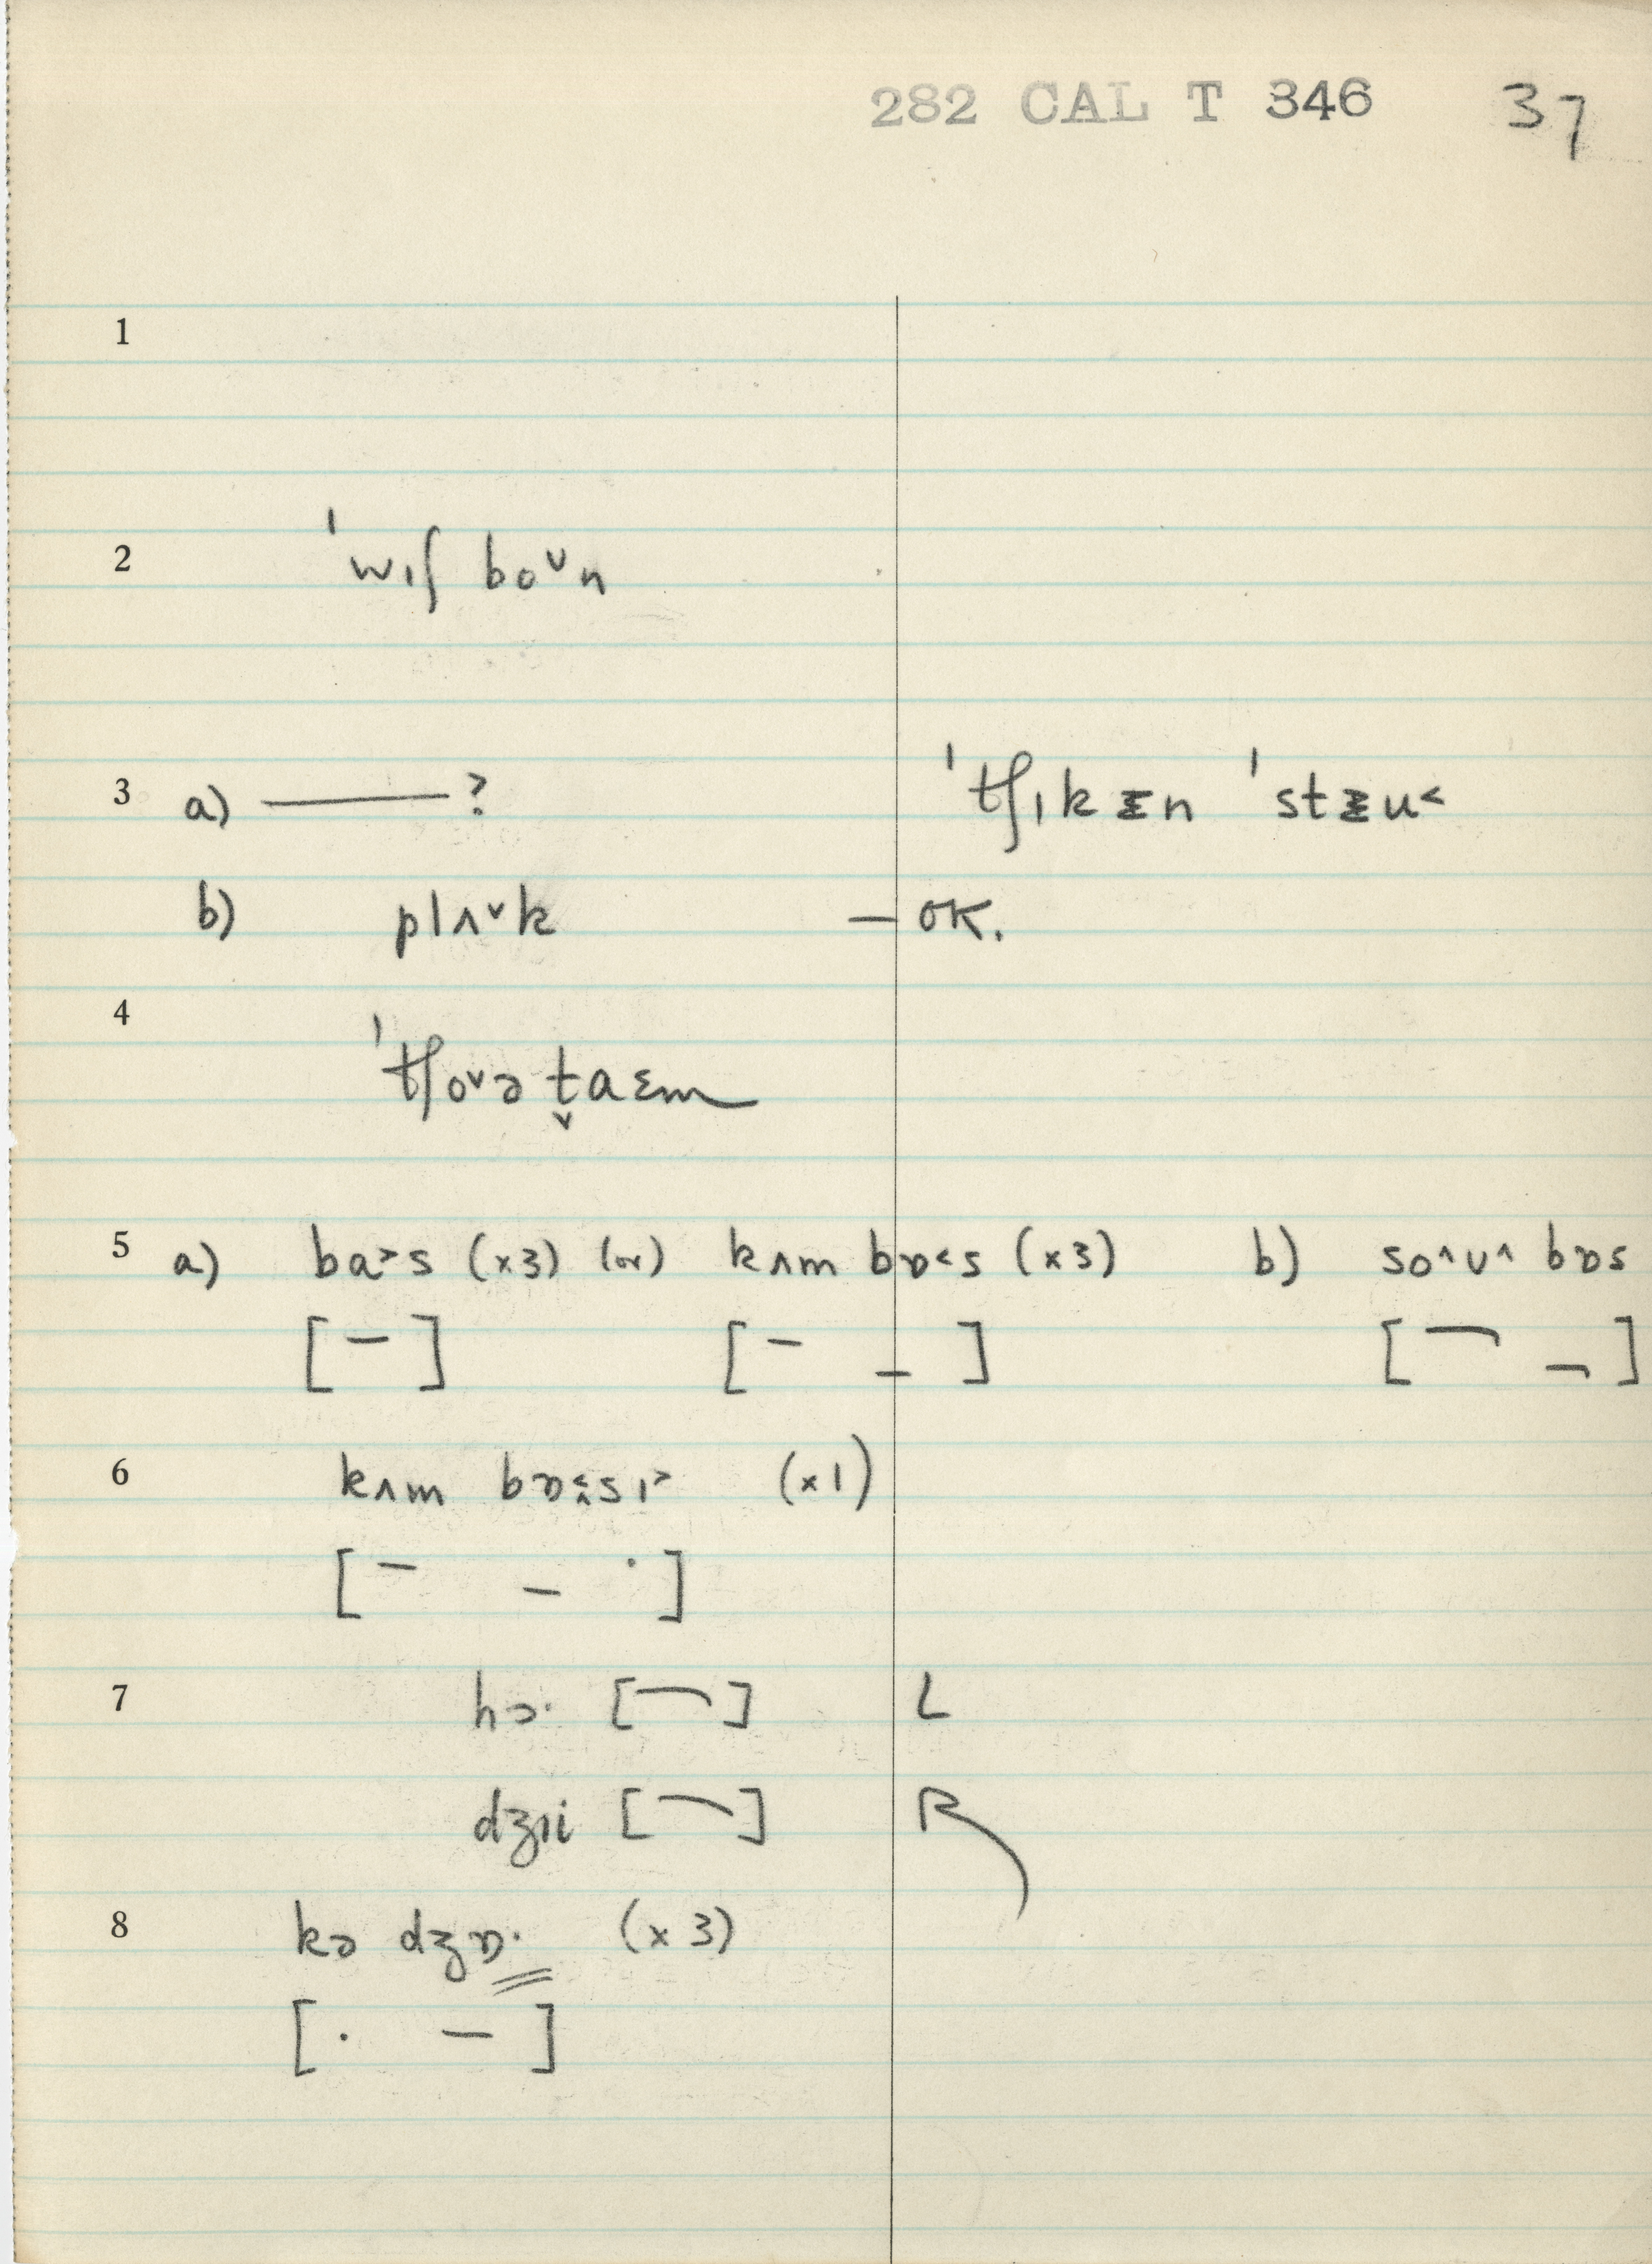 282 CAL T 346 37
1
2 ˈwɪʃ boᵛn
3 a) ———? ˈtʃɪkɪn ˈstɪu˂
b) plʌᵛk — OK.
4 ˈtʃoᵛə t̬aɛm
5 a) ba˃s (x3) (or) kʌm bɒ˂s (x3) b) so^ʊ^ bɒs
[ – ] [ – – ] [ ¬ ¬ ]
6 kʌm bɒ˂sɪ˃ (x1)
[ – – · ]
7 hɔ· [ ¬ ] L
dʒɪi [ ¬ ] R
8 kə dʒɒ· (x3)
[ · – ]